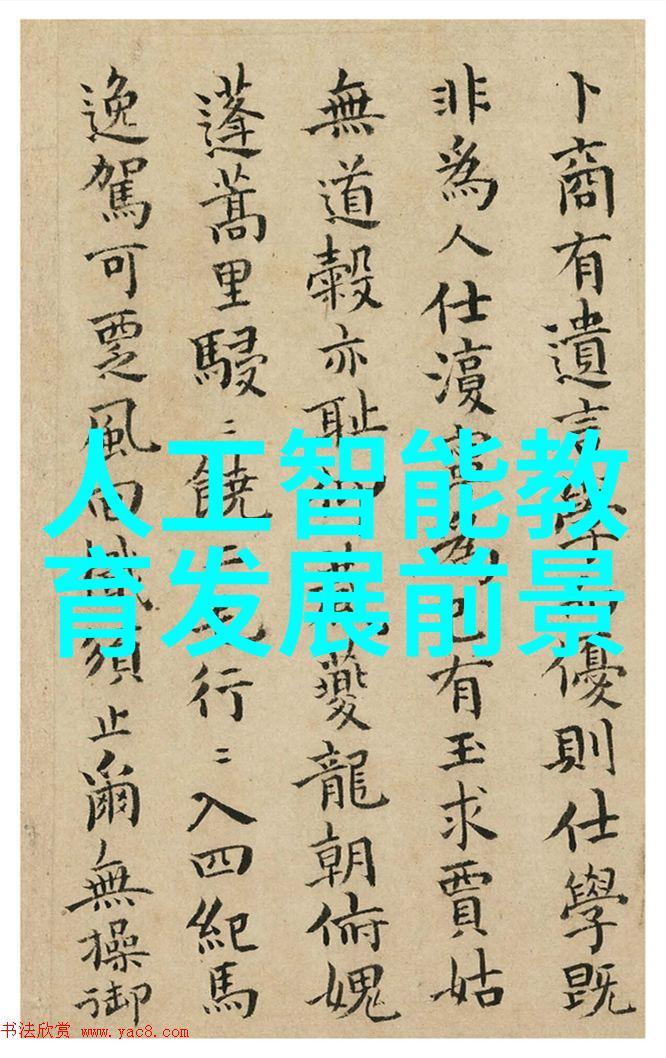 卜商有遺言學優則仕學既
非為人仕湏為己有玉求賈姑
無道穀亦恥夔龍朝俯媿
蓬蒿里駸〻饒行〻入四紀馬
逸駕可覂風回須止爾無操御
人工智能教
育发展前景
书法欣赏 www.yac8.com